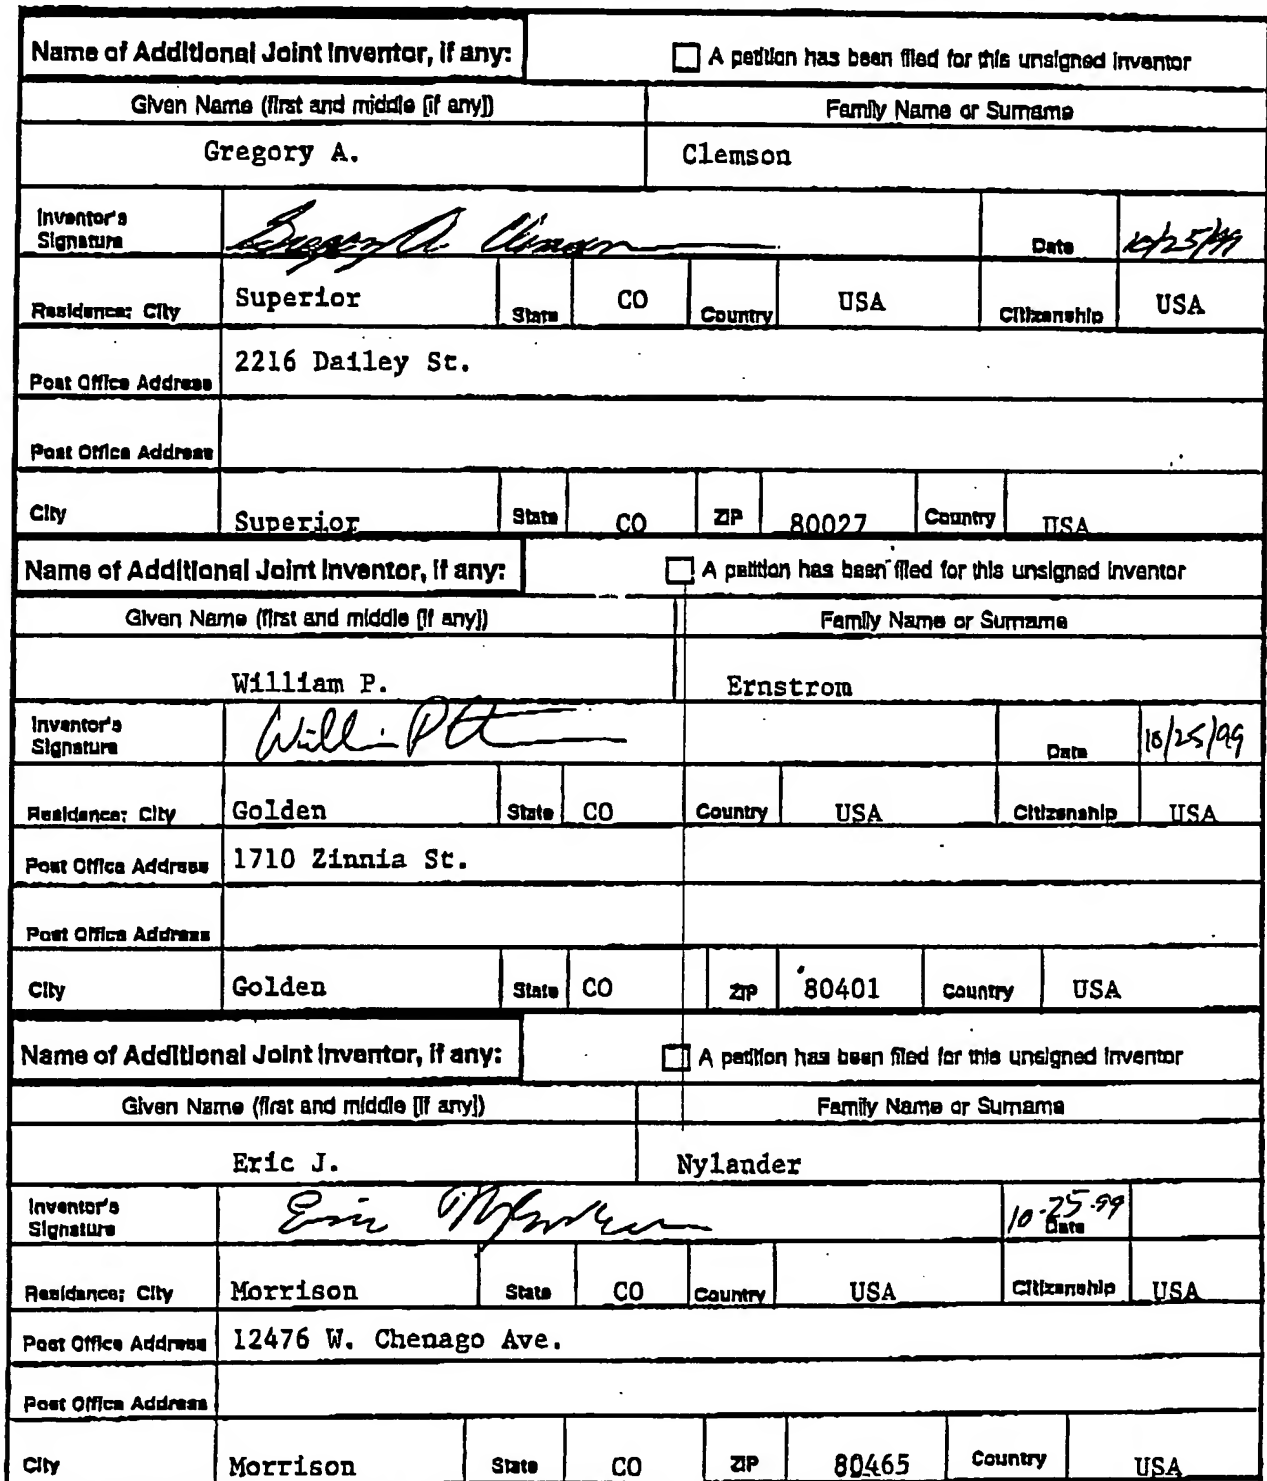 Name of Additional Joint Inventor, if any: A petition has been filed for this unsigned inventor
Given Name (first and middle [if any]) Family Name or Surname
Gregory A. Clemson
Inventor's Signature Gregory A. Clemson Date 10/25/99
Residence: City Superior State CO Country USA Citizenship USA
Post Office Address 2216 Dailey St.
Post Office Address
City Superior State CO ZIP 80027 Country USA
Name of Additional Joint Inventor, if any: A petition has been filed for this unsigned inventor
Given Name (first and middle [if any]) Family Name or Surname
William P. Ernstrom
Inventor's Signature Date 10/25/99
Residence: City Golden State CO Country USA Citizenship USA
Post Office Address 1710 Zinnia St.
Post Office Address
City Golden State CO ZIP 80401 Country USA
Name of Additional Joint Inventor, if any: A petition has been filed for this unsigned inventor
Given Name (first and middle [if any]) Family Name or Surname
Eric J. Nylander
Inventor's Signature Eric Nylander 10-25-99 Date
Residence: City Morrison State CO Country USA Citizenship USA
Post Office Address 12476 W. Chenago Ave.
Post Office Address
City Morrison State CO ZIP 80465 Country USA